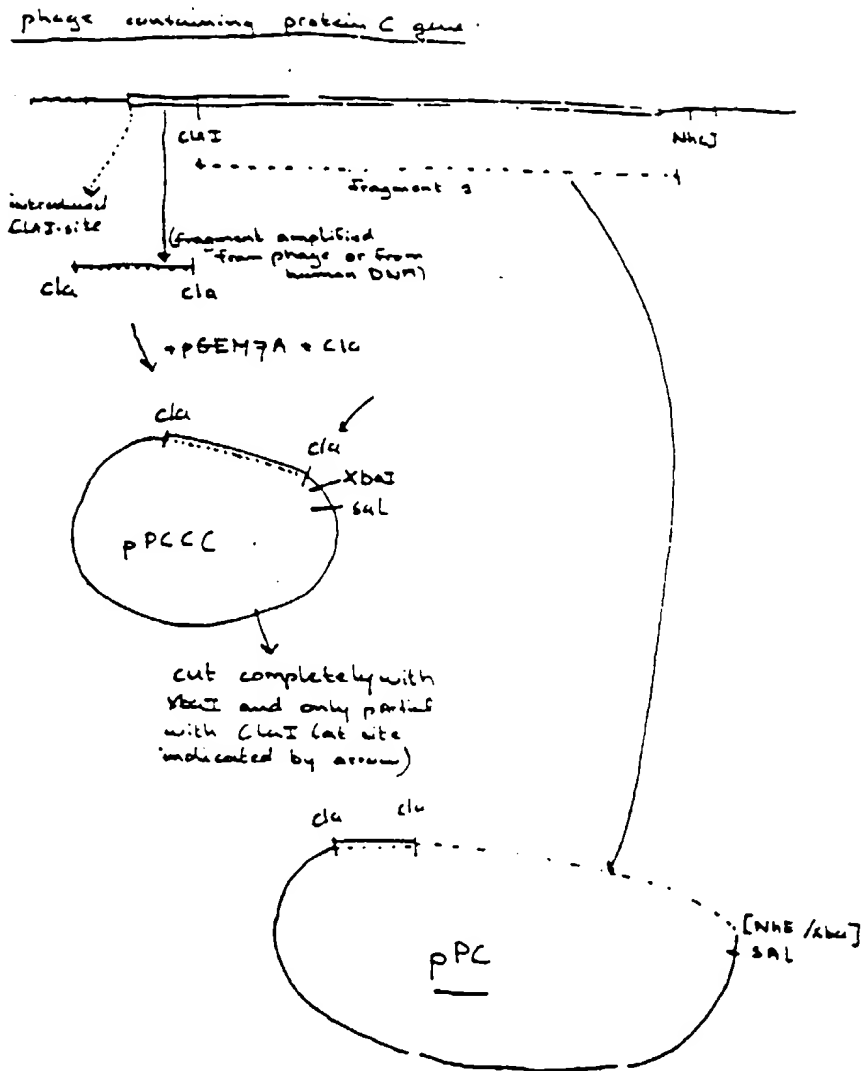 phage containing protein C gene
ClaI
NheI
fragment
introduced
ClaI-site
(fragment amplified
from phage or from
human DNA)
cla
cla
+ pGEM7A + Cla
cla
cla
XbaI
sal
pPCCC
cut completely with
XbaI and only partial
with ClaI (at site
indicated by arrow)
cla
cla
[NhE/Xba]
SAL
pPC